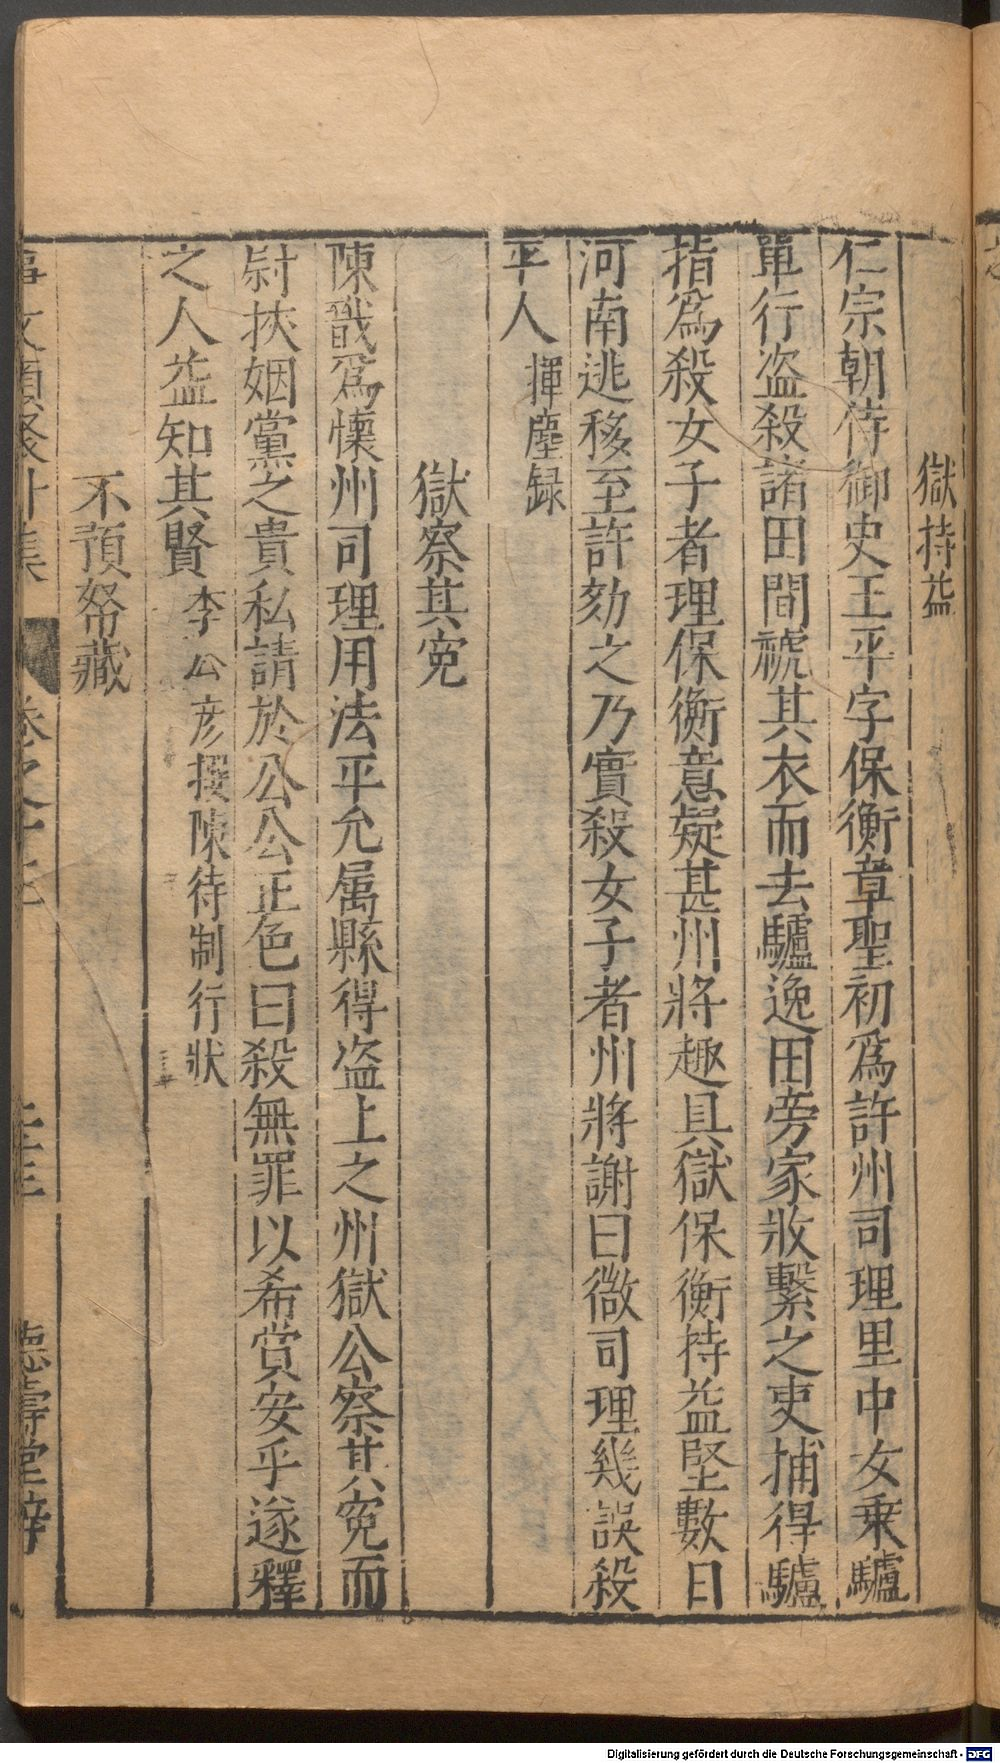 獄持益
仁宗朝侍御史王平字保衡章聖初爲許州司理里中女乗驢
單行盜殺諸田間褫其衣而去驢逸田旁家收繫之吏捕得驢
指爲殺女子者理保衡意疑甚州將趣具獄保衡持益堅數日
河南逃移至許劾之乃實殺女子者州將謝曰微司理幾誤殺
平人 揮塵録
獄察其寃
陳戩爲懷州司理用法平允属縣得盜上之州獄公察其寃而
尉挾姻黨之貴私請於公公正色曰殺無罪以希賞安乎遂釋
之人益知其賢 李公彦撰陳待制行狀
不預帑藏
事文類聚外集 卷之十三 十三 德壽堂梓
Digitalisierung gefördert durch die Deutsche Forschungsgemeinschaft - DFG